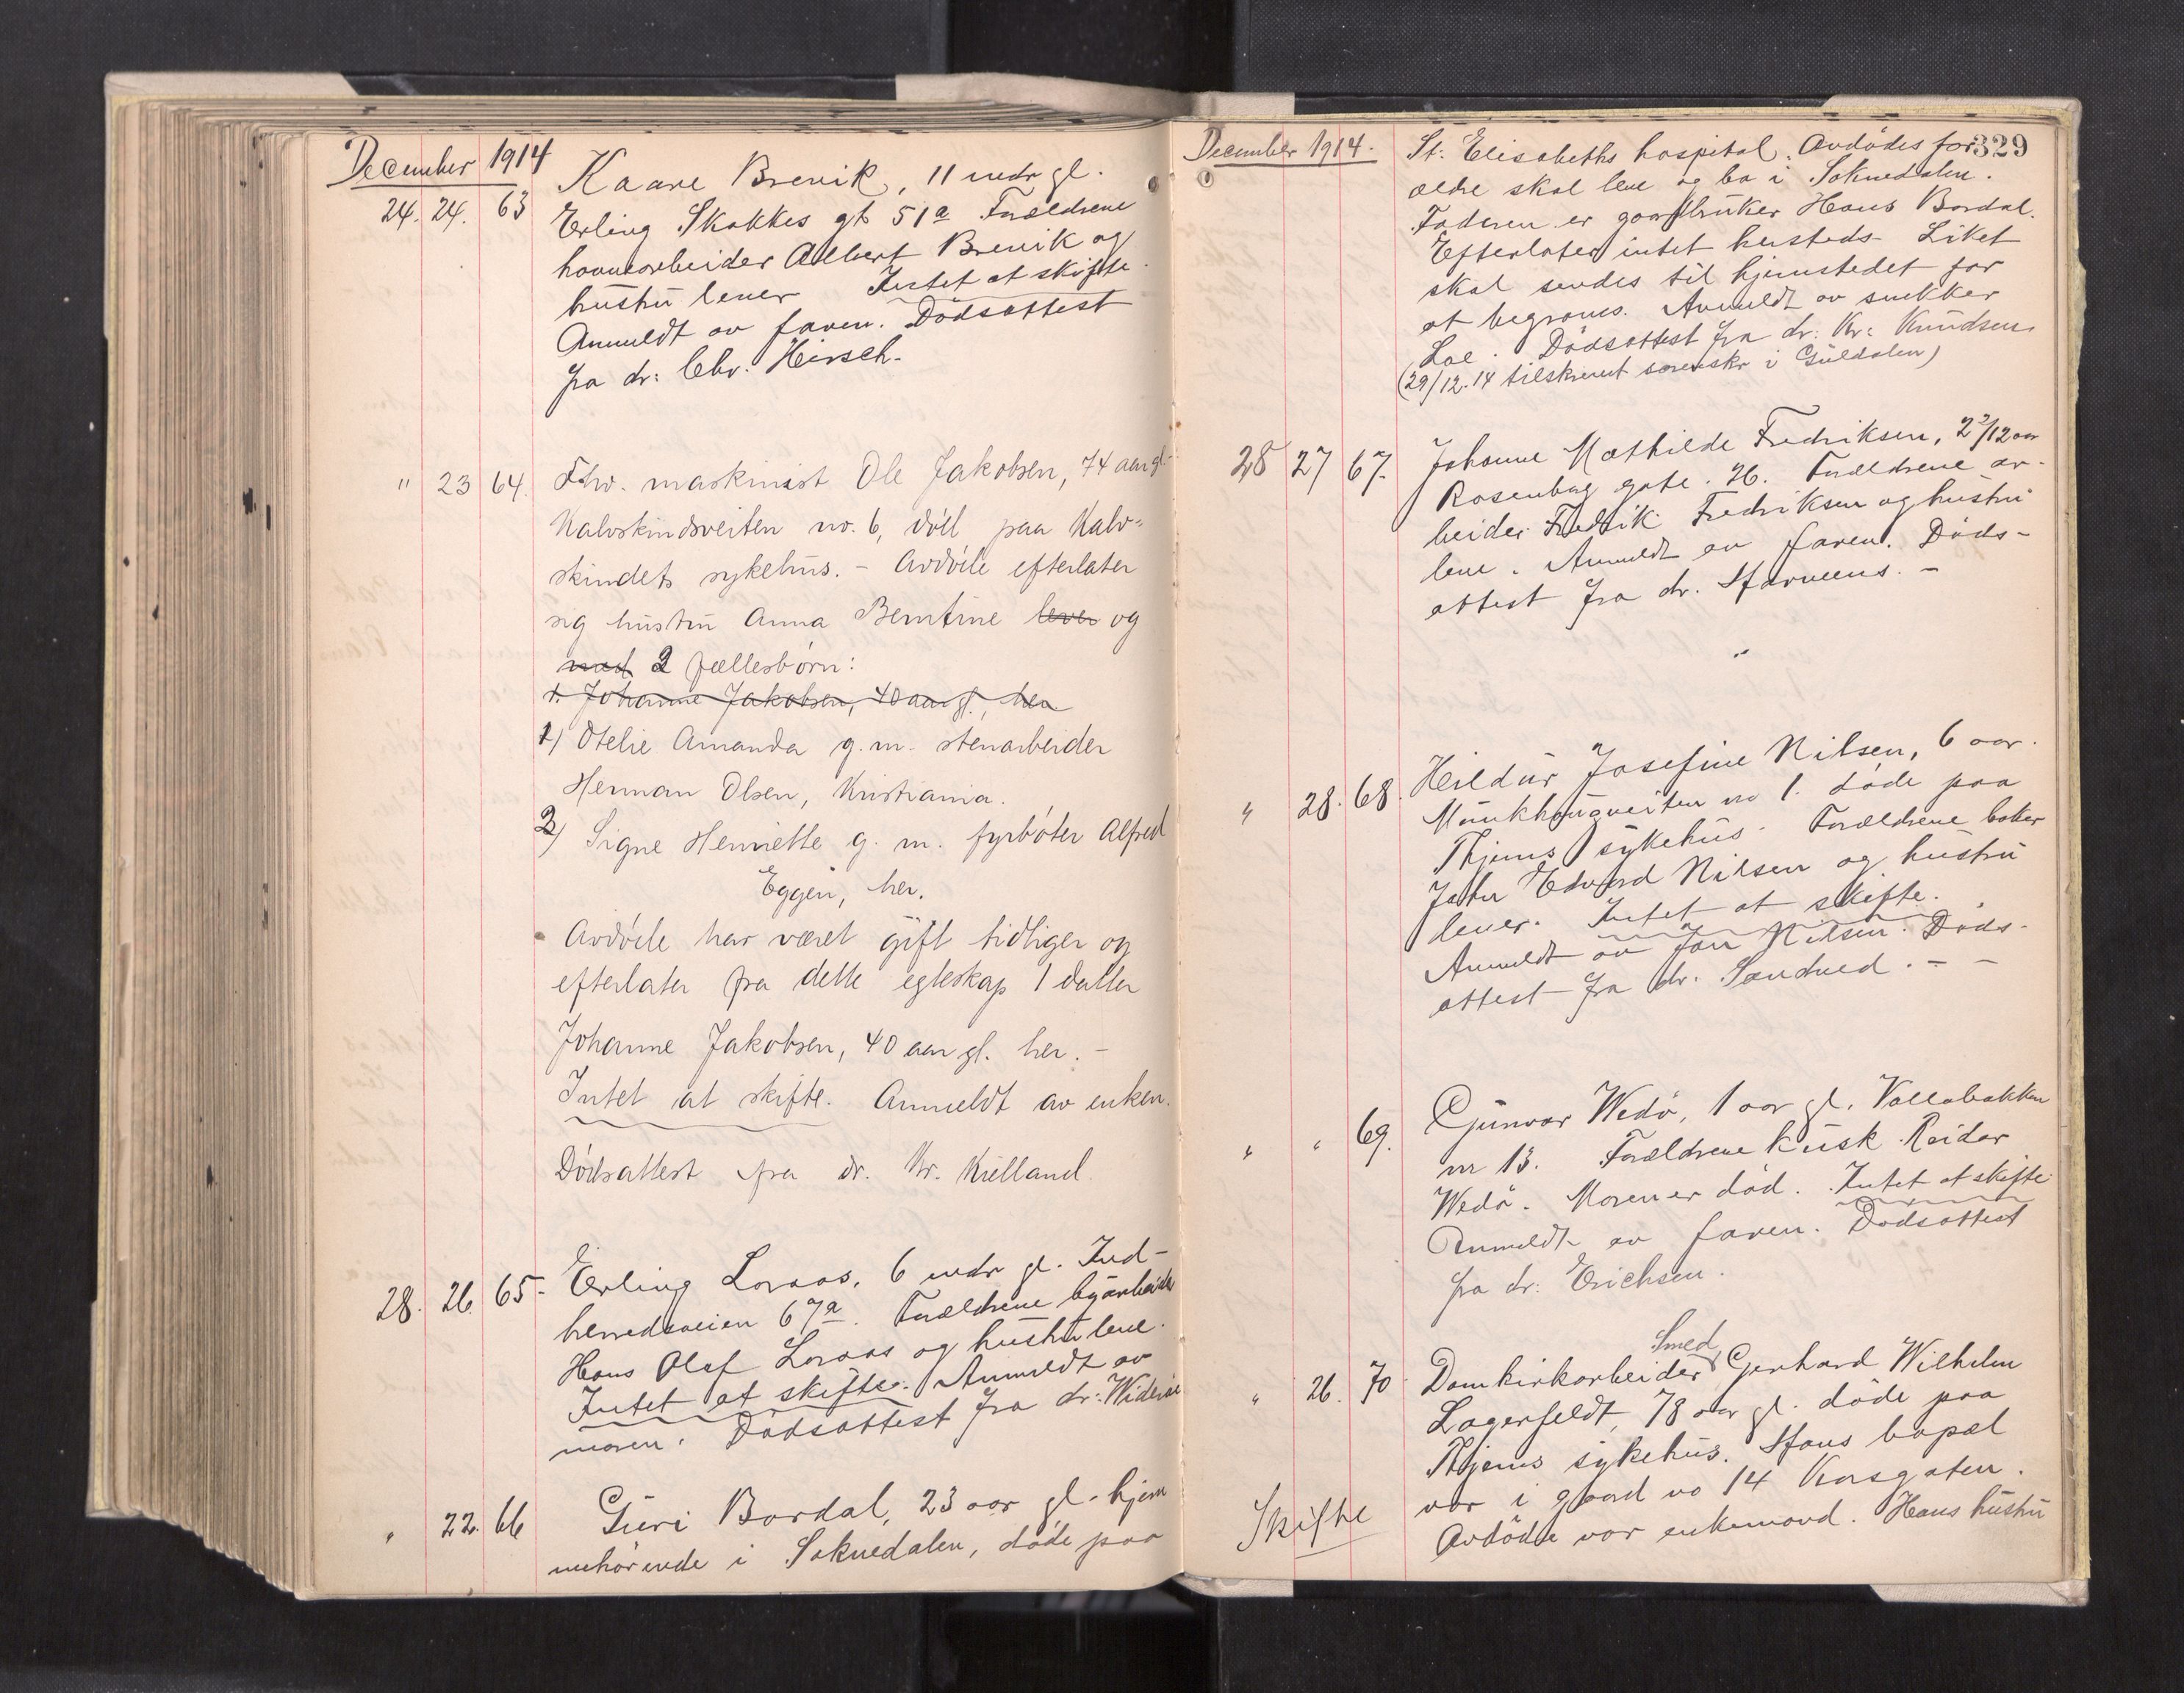 December 1914
24. 24. 63 Kaare Brevik, 11 mdr gl.
Erling Skakkes gt 51a Forældrene
havnearbeider Albert Brevik og
hustru lever Intet at skifte.
Anmeldt av faren. Dödsattest
fra dr: Chr. Hirsch.
" 23 64. Fhv. maskinist Ole Jakobsen, 74 aar gl.
Kalvskindsveiten no. 6, död paa Kalv-
skindets sykehus. - Avdöde efterlater
sig hustru Anna Berntine lever og
med 2 fællesbörn:
1. Johanne Jakobsen, 40 aar gl., her
1) Otelie Amanda g.m. stenarbeider
Herman Olsen, Kristiania.
2) Signe Henriette g. m. fyrböter Alfred
Eggen, her.
Avdöde har været gift tidliger og
efterlater fra dette egteskap 1 datter
Johanne Jakobsen, 40 aar gl. her. -
Intet at skifte. Anmeldt av enken.
Dödsattest fra dr. Kr. Kielland.
28. 26. 65. Erling Loraas, 6 mdr gl. Ind-
herredsveien 67a. Forældrene byarbeider
Hans Olaf Loraas og hustru leve.
Intet at skifte. Anmeldt av
moren. Dödsattest fra dr: Wideröe
" 22. 66 Guri Bordal, 23 aar gl. hjem
mehörende i Soknedalen, döde paa
December 1914.
329
St. Elisabeths hospital. Avdödes for
ældre skal leve og bo i Soknedalen.
Faderen er gaardbruker Hans Bordal.
Efterlater intet hersteds. Liket
skal sendes til hjemstedet for
at begraves. Anmeldt av snekker
Loe. Dödsattest fra dr: Kr: Knudsen
(29/12.14 tilskrevet sorenskr i Guldalen)
28 27 67. Johanne Mathilde Fredriksen, 2 2/12 aar
Rosenborg gate. 26. Forældrene ar-
beider Fredrik Fredriksen og hustru
leve. Anmeldt av faren. Döds-
attest fra dr. Harneens. -
" 28. 68. Hildur Josefine Nilsen, 6 aar.
Munkhaugveiten no 1. döde paa
Thjems sykehus. Forældrene baker
John Edvard Nilsen og hustru
lever. Intet at skifte.
Anmeldt av Jon Nilsen. Döds-
attest fra dr. Sandved. - -
" " 69. Gunvor Wedö, 1 aar gl. Vollabakken
nr 13. Forældrene kusk Reidar
Wedö. Moren er död. Intet at skifte
Anmeldt av faren. Dödsattest
fra dr: Erichsen.
Smed
" 26. 70 Domkirkarbeider Gerhard Wilhelm
Lagerfeldt, 78 aar gl. döde paa
Thjems sykehus. Hans bopæl
var i gaard no 14 Korsgaten.
Skifte Avdöde var enkemand. Hans hustru